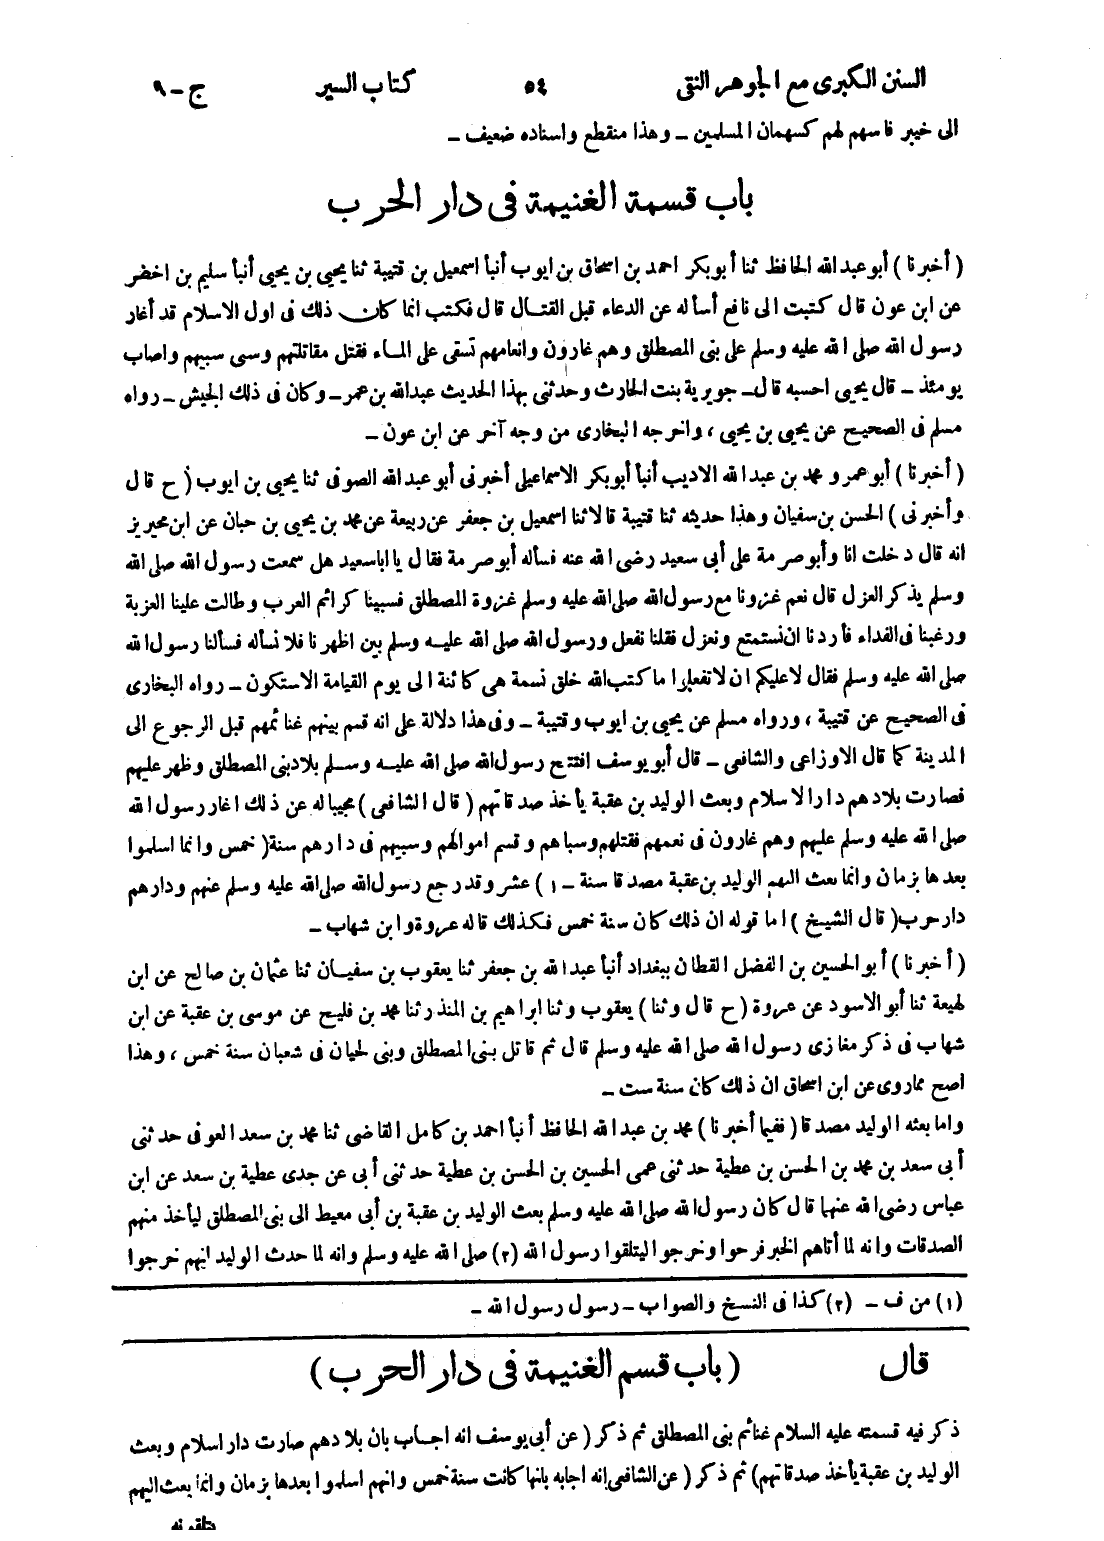 السنن الكبرى مع الجوهر النقى ٥٤ كتاب السير ج-٩
الى خيبر فاسهم لهم كسهمان المسلمين - وهذا منقطع واسناده ضعيف -
باب قسمة الغنيمة فى دار الحرب
(أخبرنا) أبو عبد الله الحافظ ثنا أبو بكر احمد بن اسحاق بن ايوب أنبأ اسمعيل بن قتيبة ثنا يحيى بن يحيى أنبأ سليم بن اخضر
عن ابن عون قال كتبت الى نافع أسأله عن الدعاء قبل القتال قال فكتب انما كان ذلك فى اول الاسلام قد أغار
رسول الله صلى الله عليه وسلم على بنى المصطلق وهم غارون وانعامهم تسقى على الماء فقتل مقاتلتهم وسبى سبيهم واصاب
يومئذ - قال يحيى احسبه قال - جويرية بنت الحارث وحدثنى بهذا الحديث عبد الله بن عمر - وكان فى ذلك الجيش - رواه
مسلم فى الصحيح عن يحيى بن يحيى ، واخرجه البخارى من وجه آخر عن ابن عون -
(أخبرنا) أبو عمرو محمد بن عبد الله الاديب أنبأ أبو بكر الاسماعيلى أخبرنى أبو عبد الله الصوفى ثنا يحيى بن ايوب (ح قال
وأخبرنى) الحسن بن سفيان وهذا حديثه ثنا قتيبة قالا ثنا اسمعيل بن جعفر عن ربيعة عن محمد بن يحيى بن حبان عن ابن محيريز
انه قال دخلت انا وأبو صرمة على أبى سعيد رضى الله عنه فسأله أبو صرمة فقال يا ابا سعيد هل سمعت رسول الله صلى الله
وسلم يذكر العزل قال نعم غزونا مع رسول الله صلى الله عليه وسلم غزوة المصطلق فسبينا كرائم العرب وطالت علينا العزبة
ورغبنا فى الفداء فأردنا ان نستمتع ونعزل فقلنا نفعل ورسول الله صلى الله عليه وسلم بين اظهرنا فلا نسأله فسألنا رسول الله
صلى الله عليه وسلم فقال لا عليكم ان لا تفعلوا ما كتب الله خلق نسمة هى كائنة الى يوم القيامة الا ستكون - رواه البخارى
فى الصحيح عن قتيبة ، ورواه مسلم عن يحيى بن ايوب وقتيبة - وفى هذا دلالة على انه قسم بينهم غنائمهم قبل الرجوع الى
المدينة كما قال الاوزاعى والشافعى - قال أبو يوسف افتتح رسول الله صلى الله عليه وسلم بلاد بنى المصطلق وظهر عليهم
فصارت بلادهم دار الاسلام وبعث الوليد بن عقبة يأخذ صدقاتهم (قال الشافعى) مجيبا له عن ذلك اغار رسول الله
صلى الله عليه وسلم عليهم وهم غارون فى نعمهم فقتلهم وسباهم وقسم اموالهم وسبيهم فى دارهم سنة (خمس وانما اسلموا
بعدها بزمان وانما بعث اليهم الوليد بن عقبة مصدقا سنة - ١) عشر وقد رجع رسول الله صلى الله عليه وسلم عنهم ودارهم
دار حرب (قال الشيخ) اما قوله ان ذلك كان سنة خمس فكذلك قاله عروة وابن شهاب -
(أخبرنا) أبو الحسين بن الفضل القطان ببغداد أنبأ عبد الله بن جعفر ثنا يعقوب بن سفيان ثنا عثمان بن صالح عن ابن
لهيعة ثنا أبو الاسود عن عروة (ح قال وثنا) يعقوب وثنا ابراهيم بن المنذر ثنا محمد بن فليح عن موسى بن عقبة عن ابن
شهاب فى ذكر مغازى رسول الله صلى الله عليه وسلم قال ثم قاتل بنى المصطلق وبنى لحيان فى شعبان سنة خمس ، وهذا
اصح مما روى عن ابن اسحاق ان ذلك كان سنة ست -
واما بعثه الوليد مصدقا (ففيما أخبرنا) محمد بن عبد الله الحافظ أنبأ احمد بن كامل القاضى ثنا محمد بن سعد العوفى حدثنى
أبى سعد بن محمد بن الحسن بن عطية حدثنى عمى الحسين بن الحسن بن عطية حدثنى أبى عن جدى عطية بن سعد عن ابن
عباس رضى الله عنهما قال كان رسول الله صلى الله عليه وسلم بعث الوليد بن عقبة بن أبى معيط الى بنى المصطلق ليأخذ منهم
الصدقات وانه لما أتاهم الخبر فرحوا وخرجوا ليتلقوا رسول الله (٢) صلى الله عليه وسلم وانه لما حدث الوليد انهم خرجوا
(١) من ف - (٢) كذا فى النسخ والصواب - رسول رسول الله -
قال (باب قسم الغنيمة فى دار الحرب)
ذكر فيه قسمته عليه السلام غنائم بنى المصطلق ثم ذكر (عن أبى يوسف انه اجاب بان بلادهم صارت دار اسلام وبعث
الوليد بن عقبة يأخذ صدقاتهم) ثم ذكر (عن الشافعى انه اجابه بانها كانت سنة خمس وانهم اسلموا بعدها بزمان وانما بعث اليهم